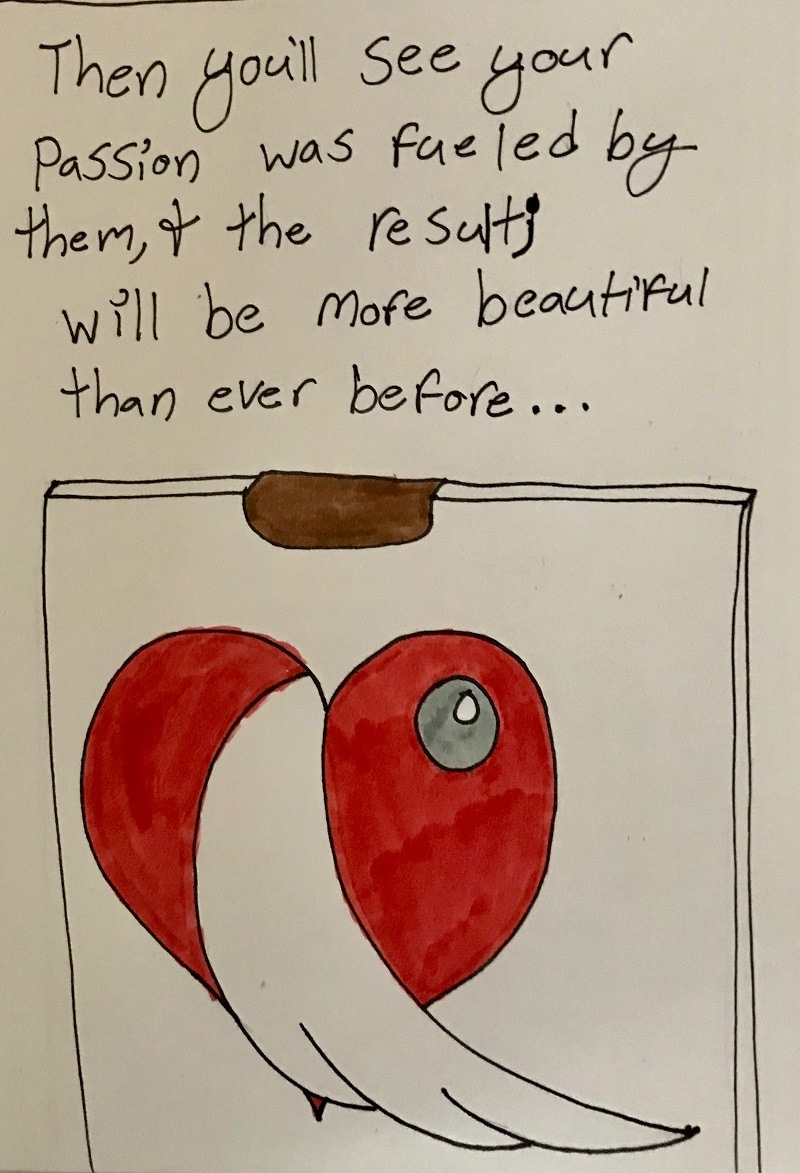 Then you'll see your
Passion was fueled by
them, & the results
will be more beautiful
than ever before...